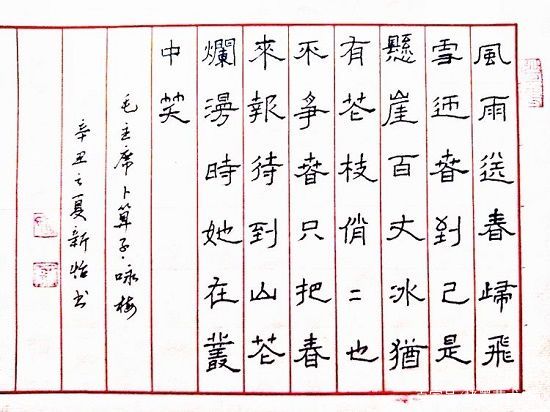 風雨送春歸飛
雪迎春到已是
懸崖百丈冰猶
有花枝俏〻也
不爭春只把春
來報待到山花
爛漫時她在叢
中笑
毛主席卜算子·咏梅
辛丑之夏新怡书